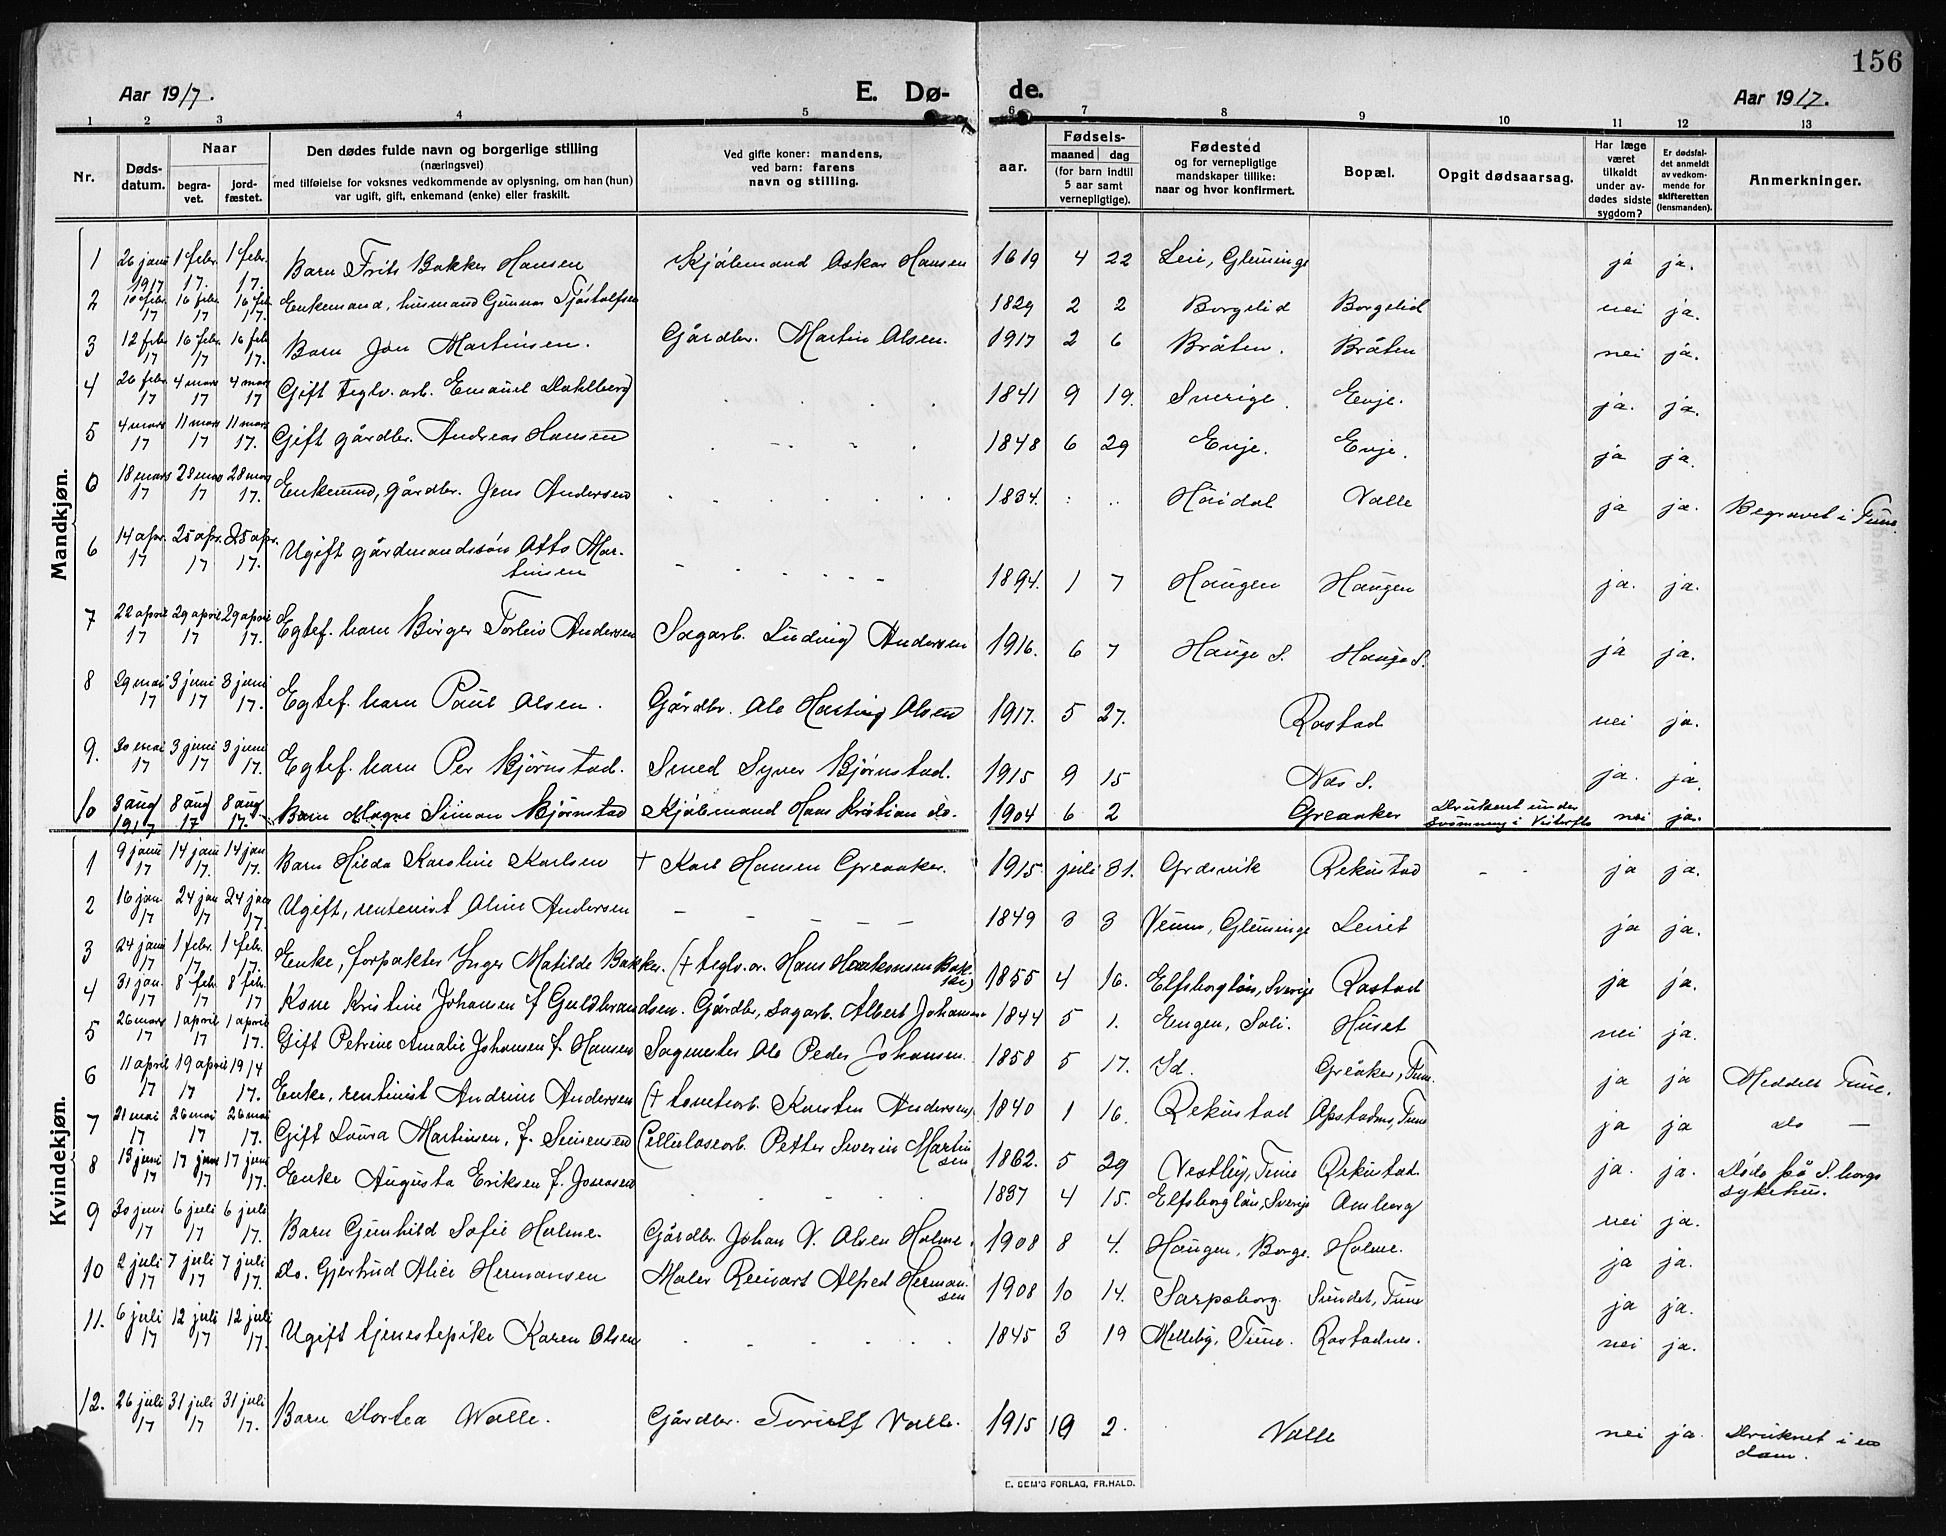 156
Aar 1917.
E. Dø-
de.
Aar 1917.
1 2 3 4 5 6 7 8 9 10 11 12 13
Nr.
Døds-datum.
Naar
begra-vet.
jord-fæstet.
Den dødes fulde navn og borgerlige stilling
(næringsvei)
med tilføielse for voksnes vedkommende av oplysning, om han (hun)
var ugift, gift, enkemand (enke) eller fraskilt.
Ved gifte koner: mandens,
ved barn: farens
navn og stilling.
aar.
Fødsels-
maaned dag
(for barn indtil
5 aar samt
vernepligtige).
Fødested
og for vernepligtige
mandskaper tillike:
naar og hvor konfirmert.
Bopæl.
Opgit dødsaarsag.
Har læge
været
tilkaldt
under av-
dødes sidste
sygdom?
Er dødsfal-
det anmeldt
av vedkom-
mende for
skifteretten
(lensmanden).
Anmerkninger.
Mandkjøn.
1 26 janu 1917 1 febr. 17. 1 febr. 17. Barn Frits Bakker Hansen Kjølemand Oskar Hansen 4 22 Leie, Glemminge ja ja.
2 10 febr. 17 16 febr. 17 16 feb. 17. Enkemand, husmand Gunnar Tjøstolfsen 1829 2 2 Borgelid Borgelid nei ja.
3 12 febr 17 16 febr. 17 16 feb 17. Barn Jon Martinsen. Gårdbr. Martin Olsen. 1917 2 6 Bråten. Bråten nei ja.
4 26 febr 17 4 mars 17 4 mars 17 Gift teglv. arb. Emanuel Dahlberg 1841 9 19. Sverige. Evje. ja. ja.
5 4 mars 17 11 mars 17 11 mars 17. Gift gårdbr. Andreas Hansen 1848 6 29 Evje. Evje. ja ja.
0 18 mars 17 28 mars 17 28 mars 17. Enkemd, gårdbr. Jens Andersen 1834. Valle ja ja. Begravet i Tune
6 14 apr. 17 25 apr. 17 25 apr. 17. Ugift gårdmandssøn Otto Mar-
tinsen 1894. 1 7 Haugen Haugen ja. ja.
7 22 april 17 29 april 17 29 april 17. Egtef. barn Birger Torleiv Andersen Sagarb. Ludvig Andersen 1916. 6 7 Hauge S. Hauge S. ja ja.
8 29 mai 17 3 juni 17 3 juni 17. Egtef. barn Paul Olsen. Gårdbr. Ole Hartvig Olsen 1917. 5 27. Rostad nei ja.
9. 30 mai 17 3 juni 17 3 juni 17. Egtef. barn Per Bjørnstad. Smed Syver Bjørnstad. 1915 9 15 Nes S. ja. ja.
10 3 aug 1917 8 aug 17 8 aug 17. Barn Magne Simon Bjørnstad Kjølemand Hans Kristian do. 1904 6 2 Greaaker Druknet under
svømning i Visterflo nei ja.
Kvindekjøn.
1 9 janu 17 14 janu 17. 14 jan 17. Barn Hilda Karoline Karlsen + Karl Hansen Greaaker. 1915. juli 31. Gresvik Rekustad - - ja ja.
2 16 jan 17 24 jan 17 24 jan 17. Ugift, rentenist Oline Andersen 1849 3 3 Veum, Glemminge Leiret ja ja.
3 24 janu 17 1 febr. 17 1 febr. 17. Enke, forpakter Inger Matilde Bakker. (+ teglv. ar. Hans Haakonsen Bak-
ke) 1855 4 16. Elfsborglän, Sverige Rostad ja ja.
4 31 jan. 17 8 feb 17 8 feb. 17. Kone Kristine Johansen f. Guldbrandsen. Gårdbr, sagarb. Albert Johansen 1844 5 1. Engen, Soli. Huset nei ja.
5 26 mars 17 1 april 17 1 april 17. Gift Petrine Amalie Johansen f. Hansen Sagmester Ole Peder Johansen. 1858 5 17. Id. Greåker, Tune. ja ja Meddelt Tune.
6 11 april 17 19 april 17 19/4 17. Enke, rentinist Andrine Andersen (+ tomtearb. Karsten Andersen) 1840 1 16. Rekustad Opstadns, Tune ja ja do —
7 21 mai 17 26 mai 17 26 mai 17. Gift Laura Martinsen, f. Simensen Cellulosearb. Petter Severin Martin
sen 1862. 5 29 Vestby, Tune Rekustad ja. ja. Døde på S.borgs
sykehus.
8 13 juni 17 17 juni 17 17 juni 17. Enke Augusta Eriksen f. Jonasen 1837 4 15. Elfsborglän, Sverige Amborg nei ja.
9 30 juni 17 6 juli 17 6 juli 17. Barn Gunhild Sofie Holme. Gårdbr. Johan V. Olsen Holme. 1908 8 4. Haugen, Borge. Holme. ja ja.
10 2 juli 17 7 juli 17 7 juli 17. do. Gjertrud Alice Hermansen Maler Reivart Alfred Herman-
sen 1908 10 14. Sarpsborg. Sundet, Tune ja ja.
11. 6 juli 17 12 juli 17 12 juli 17. Ugift tjenestepike Karen Olsen 1845 3 19 Melleby, Tune. Rostadnes. nei ja.
12. 26 juli 17 31 juli 17 31 juli 17. Barn Dortea Valle. Gårdbr. Toralf Valle. 1915 2. Valle nei ja Druknet i en
dam.
E. SEM'S FORLAG, FR.HALD.